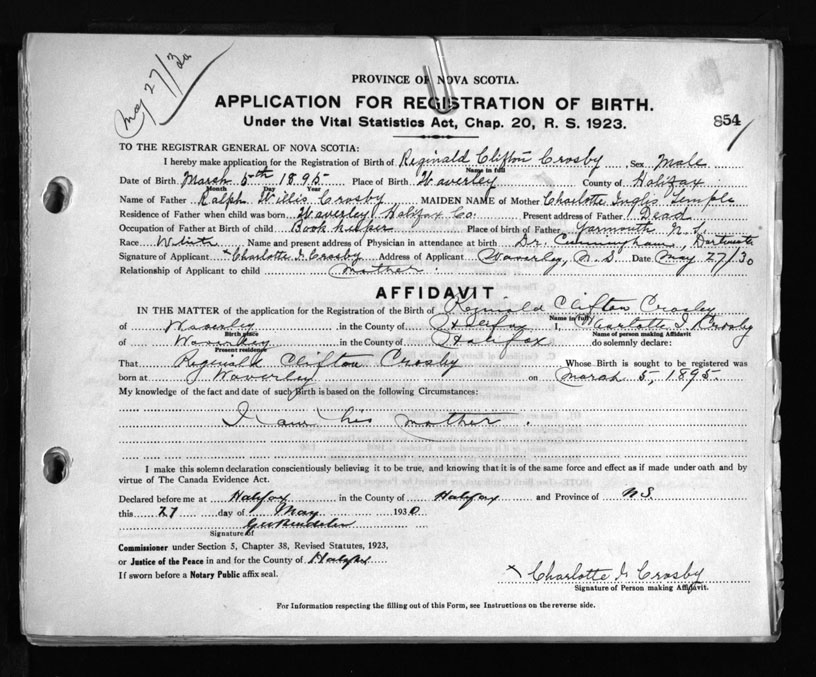 May 27/30
PROVINCE OF NOVA SCOTIA.
APPLICATION FOR REGISTRATION OF BIRTH.
854
Under the Vital Statistics Act, Chap. 20, R. S. 1923.
TO THE REGISTRAR GENERAL OF NOVA SCOTIA:
I hereby make application for the Registration of Birth of Reginald Clifton Crosby Sex Male
Name in full
Date of Birth March 5th 1895 Place of Birth Waverley County of Halifax
Month Day Year
Name of Father Ralph Willis Crosby MAIDEN NAME of Mother Charlotte Inglis Temple
Residence of Father when child was born Waverley Halifax Co. Present address of Father Dead
Occupation of Father at Birth of child Book keeper Place of birth of Father Yarmouth N.S.
Race White Name and present address of Physician in attendance at birth Dr. Cunningham, Dartmouth
Signature of Applicant x Charlotte I. Crosby Address of Applicant Waverley, N.S Date May 27/30
Relationship of Applicant to child mother.
AFFIDAVIT
IN THE MATTER of the application for the Registration of the Birth of Reginald Clifton Crosby
Name in full
of Waverley in the County of Halifax I, Charlotte I. Crosby
Birth place Name of person making Affidavit
of Waverley in the County of Halifax do solemnly declare:
Present residence
That Reginald Clifton Crosby Whose Birth is sought to be registered was
born at Waverley on March 5, 1895.
My knowledge of the fact and date of such Birth is based on the following Circumstances:
I am his mother.
I make this solemn declaration conscientiously believing it to be true, and knowing that it is of the same force and effect as if made under oath and by
virtue of The Canada Evidence Act.
Declared before me at Halifax in the County of Halifax and Province of N.S.
this 27 day of May 1930
Signature of
Commissioner under Section 5, Chapter 38, Revised Statutes, 1923,
or Justice of the Peace in and for the County of Halifax
If sworn before a Notary Public affix seal.
x Charlotte I. Crosby
Signature of Person making Affidavit.
For Information respecting the filling out of this Form, see Instructions on the reverse side.